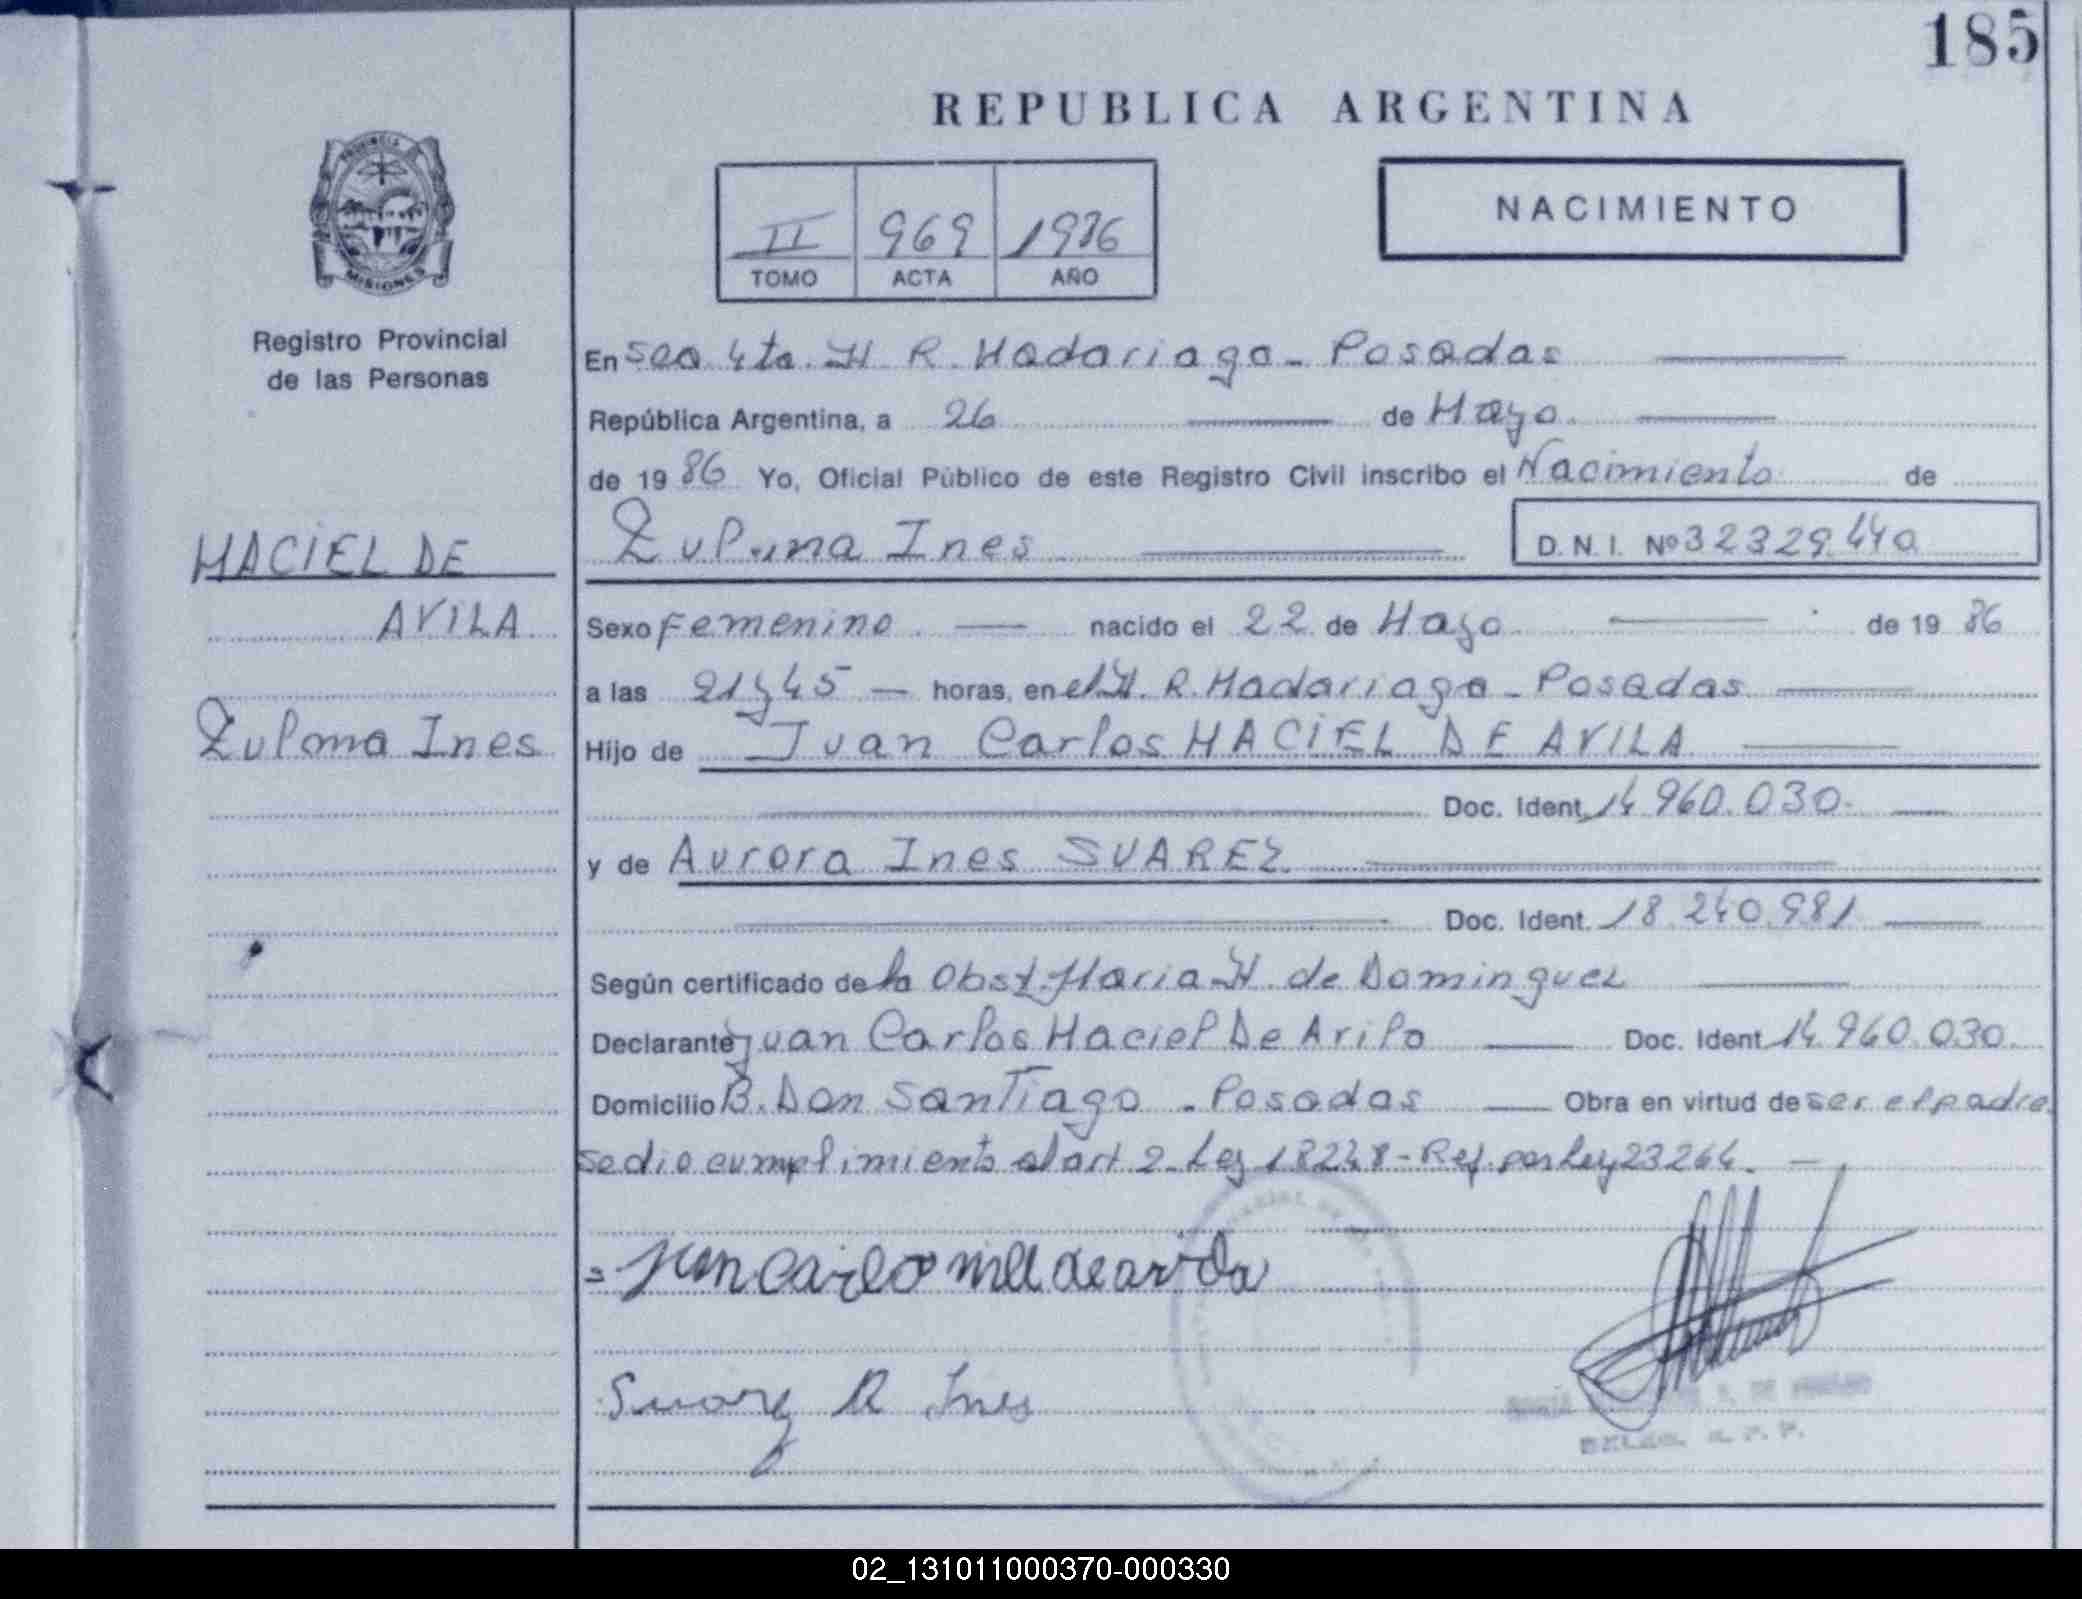 185
REPUBLICA ARGENTINA
PROVINCIA
MISIONES
Registro Provincial
de las Personas
II 969 1986
TOMO ACTA AÑO
NACIMIENTO
En Sec 4ta. H R. Madariaga - Posadas
República Argentina, a 26 de Mayo.
de 19 86 Yo, Oficial Público de este Registro Civil inscribo el Nacimiento de
Zulma Ines D. N. I. Nº 32329.440
MACIEL DE
AVILA
Zulma Ines
Sexo Femenino nacido el 22 de Mayo de 19 86
a las 21 y 45 horas, en el H. R. Madariaga - Posadas
Hijo de Juan Carlos MACIEL DE AVILA
Doc. Ident. 14.960.030.
y de Aurora Ines SUAREZ.
Doc. Ident. 18.240.981
Según certificado de la Obst. Maria H. de Dominguez
Declarante Juan Carlos Maciel De Avila Doc. Ident. 14.960.030.
Domicilio B. Don Santiago - Posadas Obra en virtud de ser el padre
se dio cumplimiento al art 2 - Ley 18248 - Ref. por Ley 23264.
Juan Carlo de avila
Suarez A Ines
02_131011000370-000330